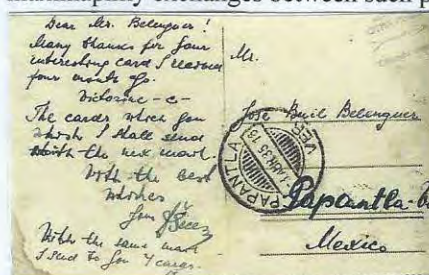 Dear Mr. Belenguer!
Many thanks for your
interesting card I received
four weeks ago.
The cards which you
wish I shall send
with the next mail.
With the best
wishes
Your
With the same mail
I send to you 4 cards.
Mr.
José Buil Belenguer
PAPANTLA
VER
Papantla-
Mexico